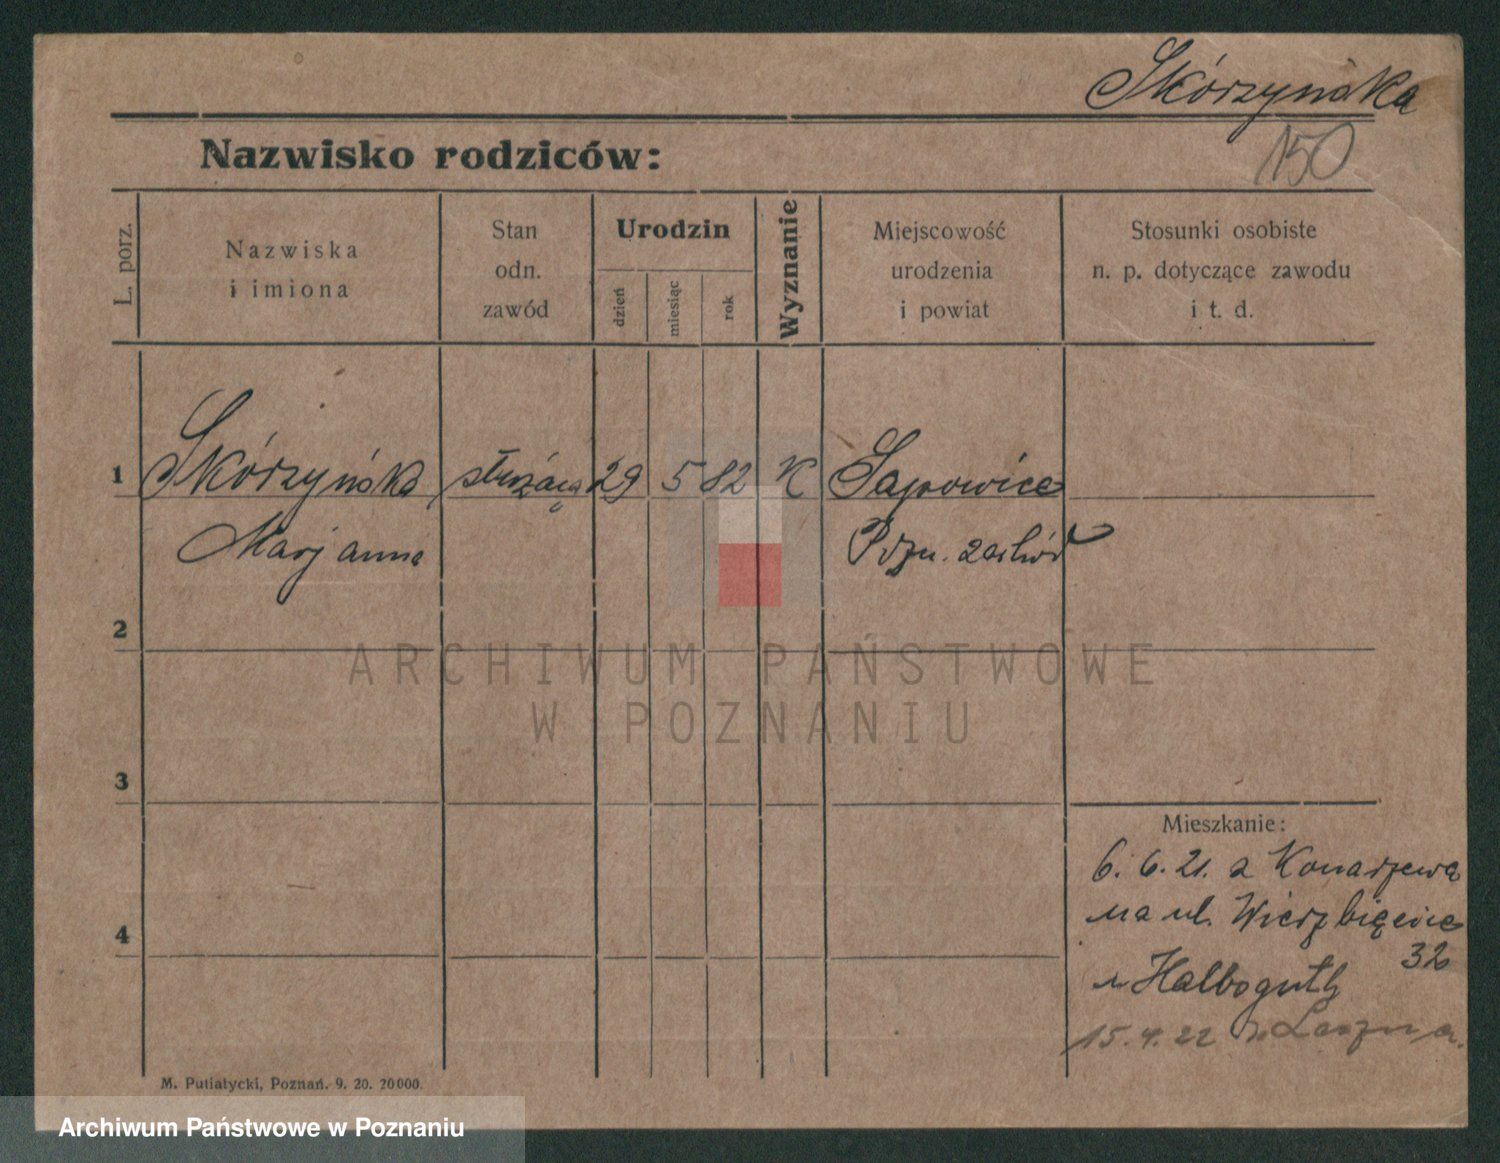 Skórzyńska
150
Nazwisko rodziców:
L. porz.
Nazwiska
i imiona
Stan
odn.
zawód
Urodzin
dzień
miesiąc
rok
Wyznanie
Miejscowość
urodzenia
i powiat
Stosunki osobiste
n. p. dotyczące zawodu
i t. d.
1 Skórzyńska służąca 29 5 82 K Sapowice
Marjanna Pozn. zachód
2
3
4
ARCHIWUM PAŃSTWOWE
W POZNANIU
Mieszkanie:
6. 6. 21. z Konarzewa
na ul. Wierzbięcice
32
u Halboguth
15. 4. 22
M. Putiatycki, Poznań. 9. 20. 20000.
Archiwum Państwowe w Poznaniu